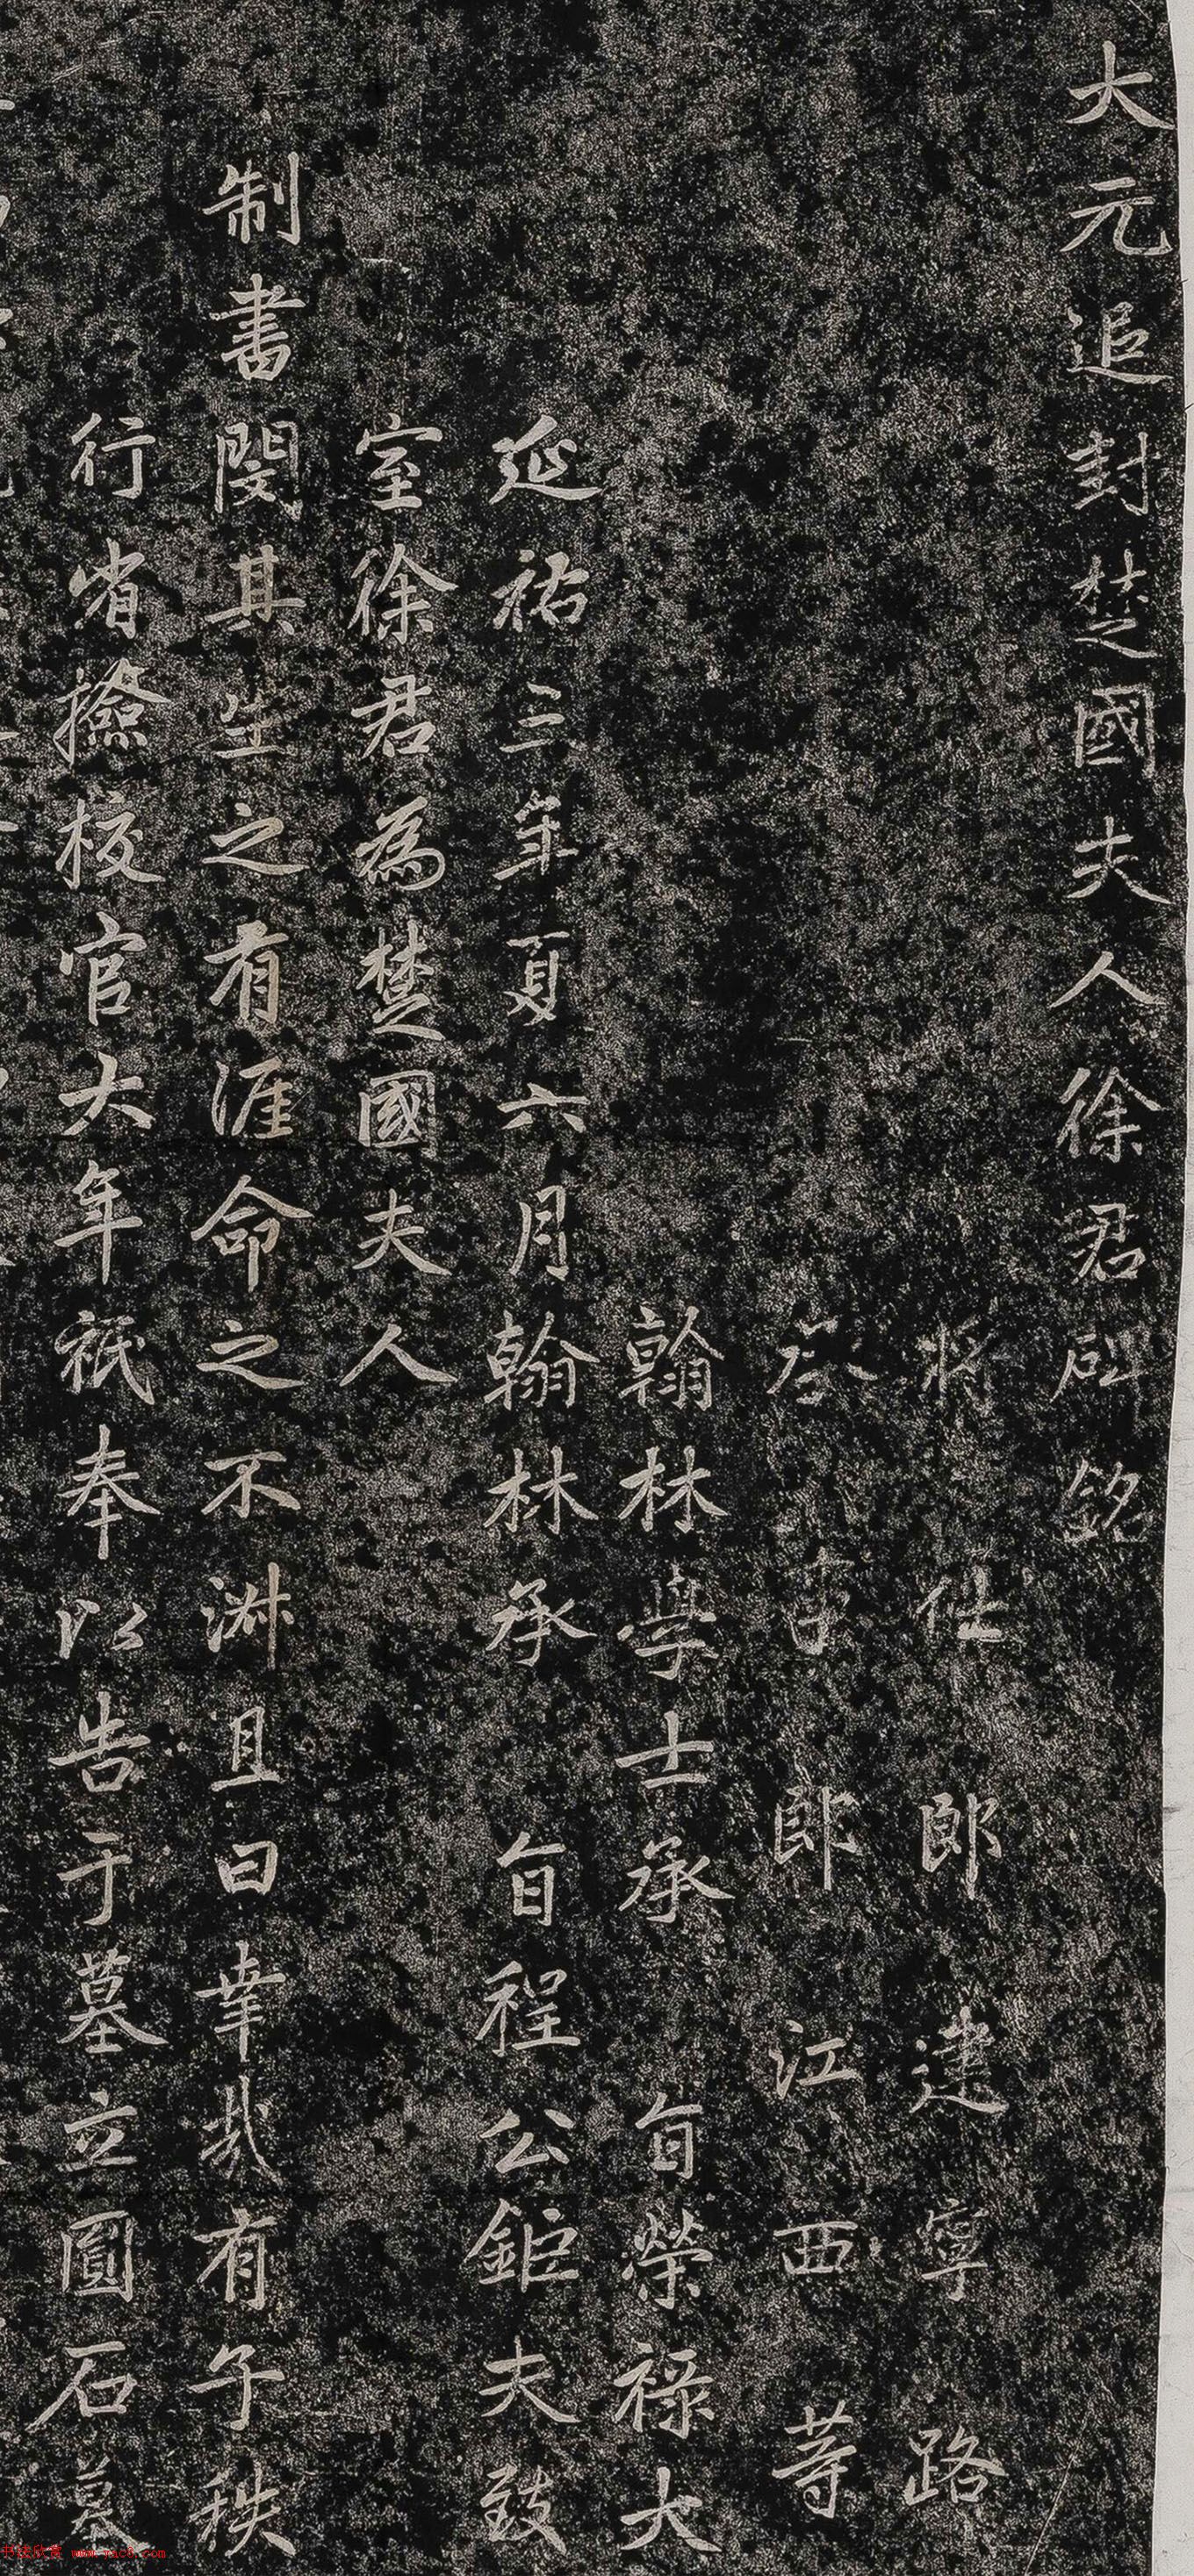 大元追封楚國夫人徐君碑銘
將仕郎建寧路
登仕郎江西等
翰林學士承旨榮祿大
延祐三年夏六月翰林承旨程公鉅夫致
室徐君為楚國夫人
制書閔其生之有涯命之不淑且曰幸哉有子秩
行省撿校官大年祗奉以告于墓立圓石墓
书法欣赏 www.yac8.com